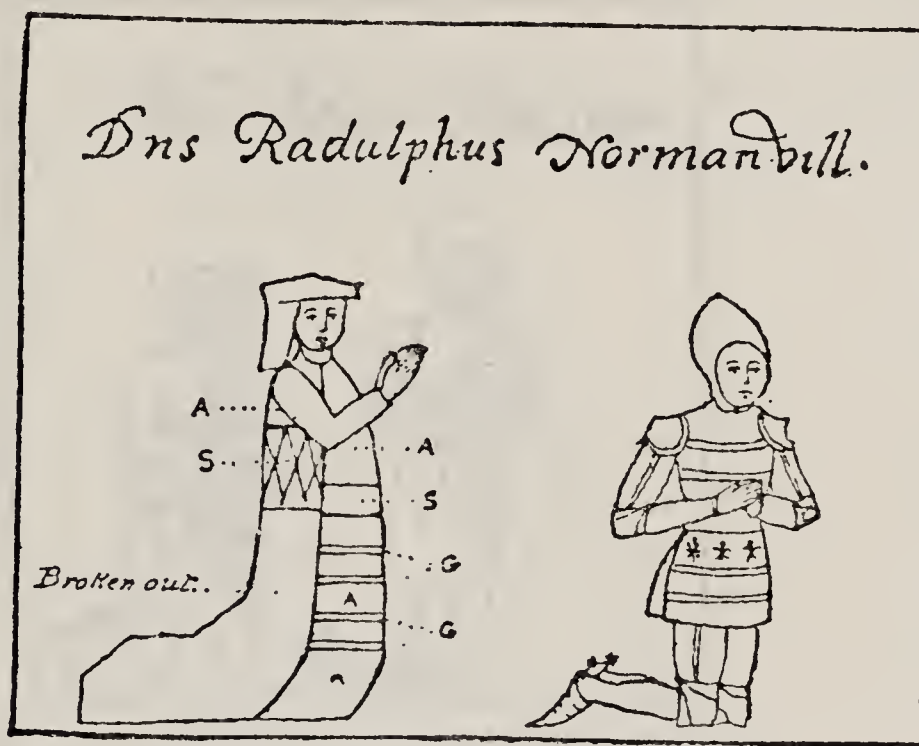 Dns Radulphus Normanvill.
A
S
A
S
G
Broken out
A
G
A